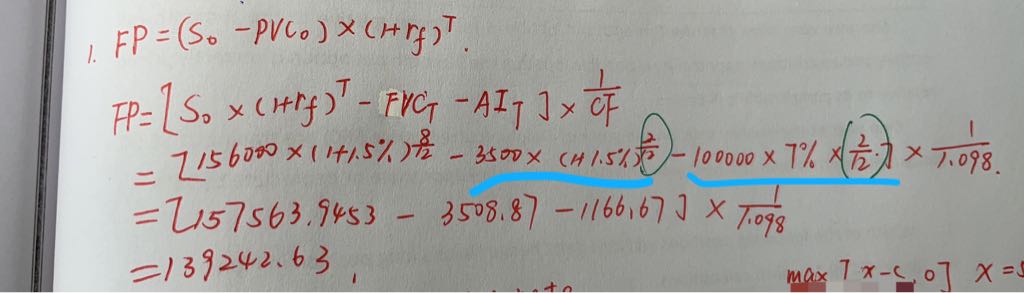 1. FP=(S₀ -PVC₀)×(1+rf)ᵀ.
FP=[S₀×(1+rf)ᵀ - FVC_T - AI_T]× 1/CF
=[156000×(1+1.5%)^8/12 - 3500×(1+1.5%)^2/12 - 100000×7%×(2/12)]× 1/1.098.
=[157563.9453 - 3508.87 - 1166.67]× 1/1.098
=139242.63.
max[x-c,0] X=